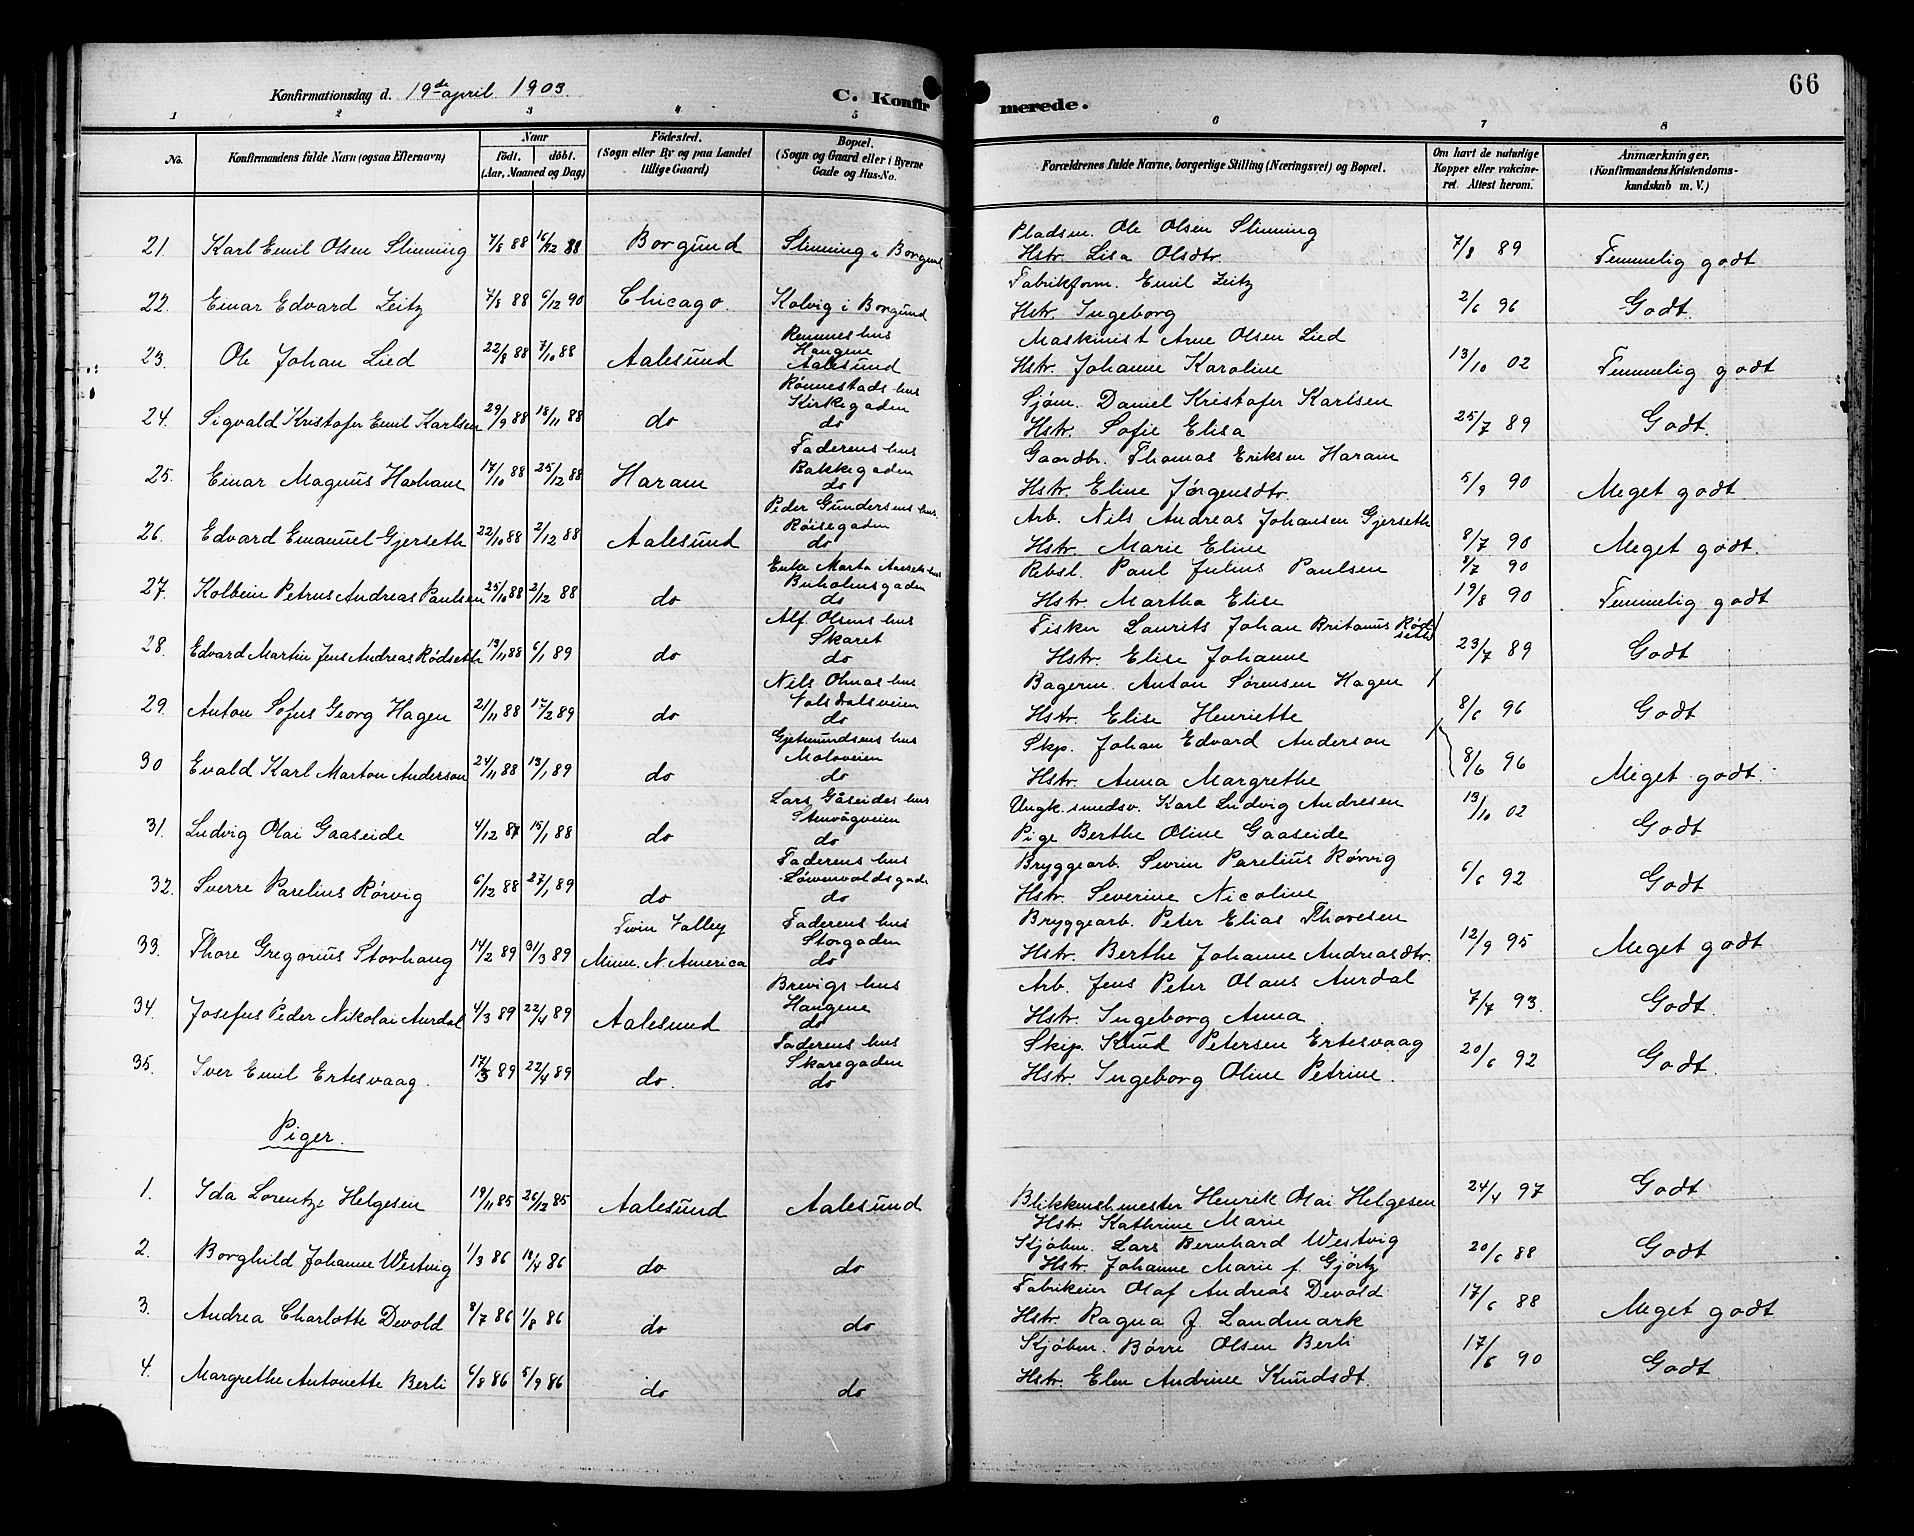 66
Konfirmationsdag d. 19de april 1903.
C. Konfirmerede.
1 2 3 4 5 6 7 8
No. Konfirmandens fulde Navn (ogsaa Efternavn) Naar født. døbt. (Aar, Maaned og Dag) Fødested. (Sogn eller By og paa Landet tillige Gaard) Bopæl. (Sogn og Gaard eller i Byerne Gade og Hus-No. Forældrenes fulde Navne, borgerlige Stilling (Næringsvei) og Bopæl. Om havt de naturlige Kopper eller vakcineret. Attest herom. Anmærkninger. (Konfirmandens Kristendomskundskab m. V.)
21. Karl Emil Olsen Slinning 7/8 88 16/12 88 Borgund Slinning i Borgund Pladsm. Ole Olsen Slinning
Hstr. Lisa Olsdtr. 7/8 89 Temmelig godt
22. Einar Edvard Zeitz 7/8 88 6/12 90 Chicago. Kolvig i Borgund Fabrikform. Emil Zeitz
Hstr. Ingeborg 2/6 96 Godt.
23. Ole Johan Lied 22/8 88 7/10 88 Aalesund Remmes hus
Haugene
Aalesund Maskinist Arne Olsen Lied
Hstr. Johanne Karoline 13/10 02 Temmelig godt
24. Sigvald Kristofer Emil Karlsen 29/9 88 18/11 88 do Rønnestads hus
Kirkegaden
do Sjøm. Daniel Kristofer Karlsen
Hstr. Sofie Elisa 25/7 89 Godt.
25. Einar Magnus Harham 17/10 88 25/12 88 Haram Faderens hus
Bakkegaden
do Gaardbr. Thomas Eriksen Haram
Hstr. Eline Jørgensdtr. 5/9 90 Meget godt.
26. Edvard Emanuel Gjerseth 22/10 88 2/12 88 Aalesund Peder Gundersens hus.
Røisegaden
do Arb. Nils Andreas Johansen Gjerseth
Hstr. Marie Eline 8/7 90 Meget godt.
27. Kolbein Petrus Andreas Paulsen 25/10 88 2/12 88 do Enke Marta Aarseths hus
Buholmsgaden
do Rebsl. Paul Julius Paulsen 8/7 90
Hstr. Martha Elise 19/8 90 Temmelig godt
28. Edvard Martin Jens Andreas Rødseth 13/11 88 6/1 89 do Alf. Olsens hus
Skaret
do Fisker Laurits Johan Britanus Rødseth
Hstr. Elise Johanne 23/7 89 Godt
29. Anton Sofus Georg Hagen 21/11 88 17/2 89 do Nils Olnas hus
Volsdalsveien
do Bagerm. Anton Sørensen Hagen
Hstr. Elise Henriette 8/6 96 Godt
30 Evald Karl Marton Anderson 24/11 88 13/1 89 do Gjetmundsens hus
Moloveien
do Skp. Johan Edvard Anderson
Hstr. Anna Margrethe 8/6 96 Meget godt.
31. Ludvig Olai Gaaseide 4/12 87 15/1 88 do Lars Gåseides hus
Stenvågveien
do Ungk. smedsv. Karl Ludvig Andresen
Pige Berthe Oline Gaaseide 13/10 02 Godt
32. Sverre Parelius Rørvig 6/12 88 27/1 89 do Faderens hus
Løvenvoldsgade
do Bryggearb. Sevrin Parelius Rørvig
Hstr. Severine Nicoline 6/6 92 Godt
33. Thore Gregorius Storhaug 14/2 89 31/3 89 Twin Valley
Minn. N. America Faderens hus
Storgaden
do Bryggearb. Peter Elias Thoresen
Hstr. Berthe Johanne Andreasdtr. 12/9 95 Meget godt
34. Josefus Peder Nikolai Aurdal 4/3 89 22/4 89 Aalesund Brevigs hus
Haugene
do Arb. Jens Peter Olaus Aurdal
Hstr. Ingeborg Anna 7/7 93. Godt.
35. Iver Emil Ertesvaag. 17/3 89 22/4 89 do. Faderens hus
Skaregaden
do Skip. Knud Petersen Ertesvaag
Hstr. Ingeborg Oline Petrine. 20/6 92 Godt.
Piger.
1. Ida Lorentze Helgesen 19/11 85 26/12 85 Aalesund Aalesund Blikkensl.mester Henrik Olai Helgesen
Hstr. Kathrine Marie 24/4 97 Godt
2. Borghild Johanne Westvig 1/3 86 18/4 86 do do Kjøbm. Lars Bernhard Westvig
Hstr. Johanne Marie f. Gjørtz 20/6 88 Godt
3. Andrea Charlotte Devold 8/7 86 1/8 86 do do Fabrikeier Olaf Andreas Devold
Hstr. Ragna f. Landmark 17/6 88 Meget godt
4. Margrethe Antonette Berli 6/8 86 5/9 86 do do Kjøbm. Børre Olsen Berli
Hstr. Elen Andrine Knudsdt. 17/6 90 Godt.